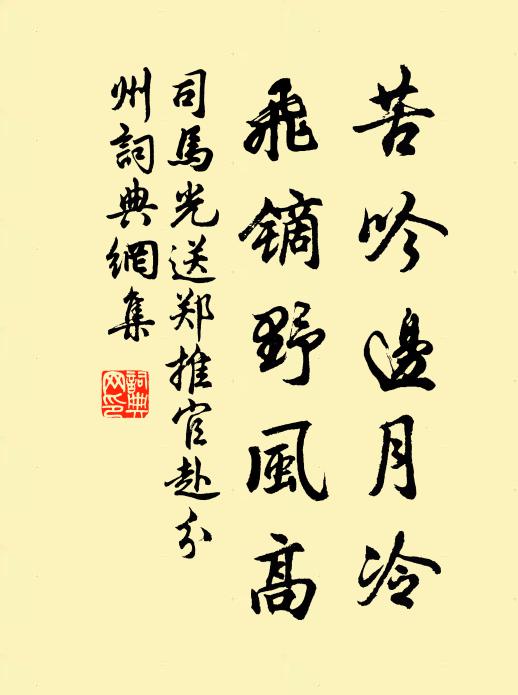 苦吟邊月冷
飛鏑野風高
司馬光送郑推官赴分
州詞典網集
詞典
网印